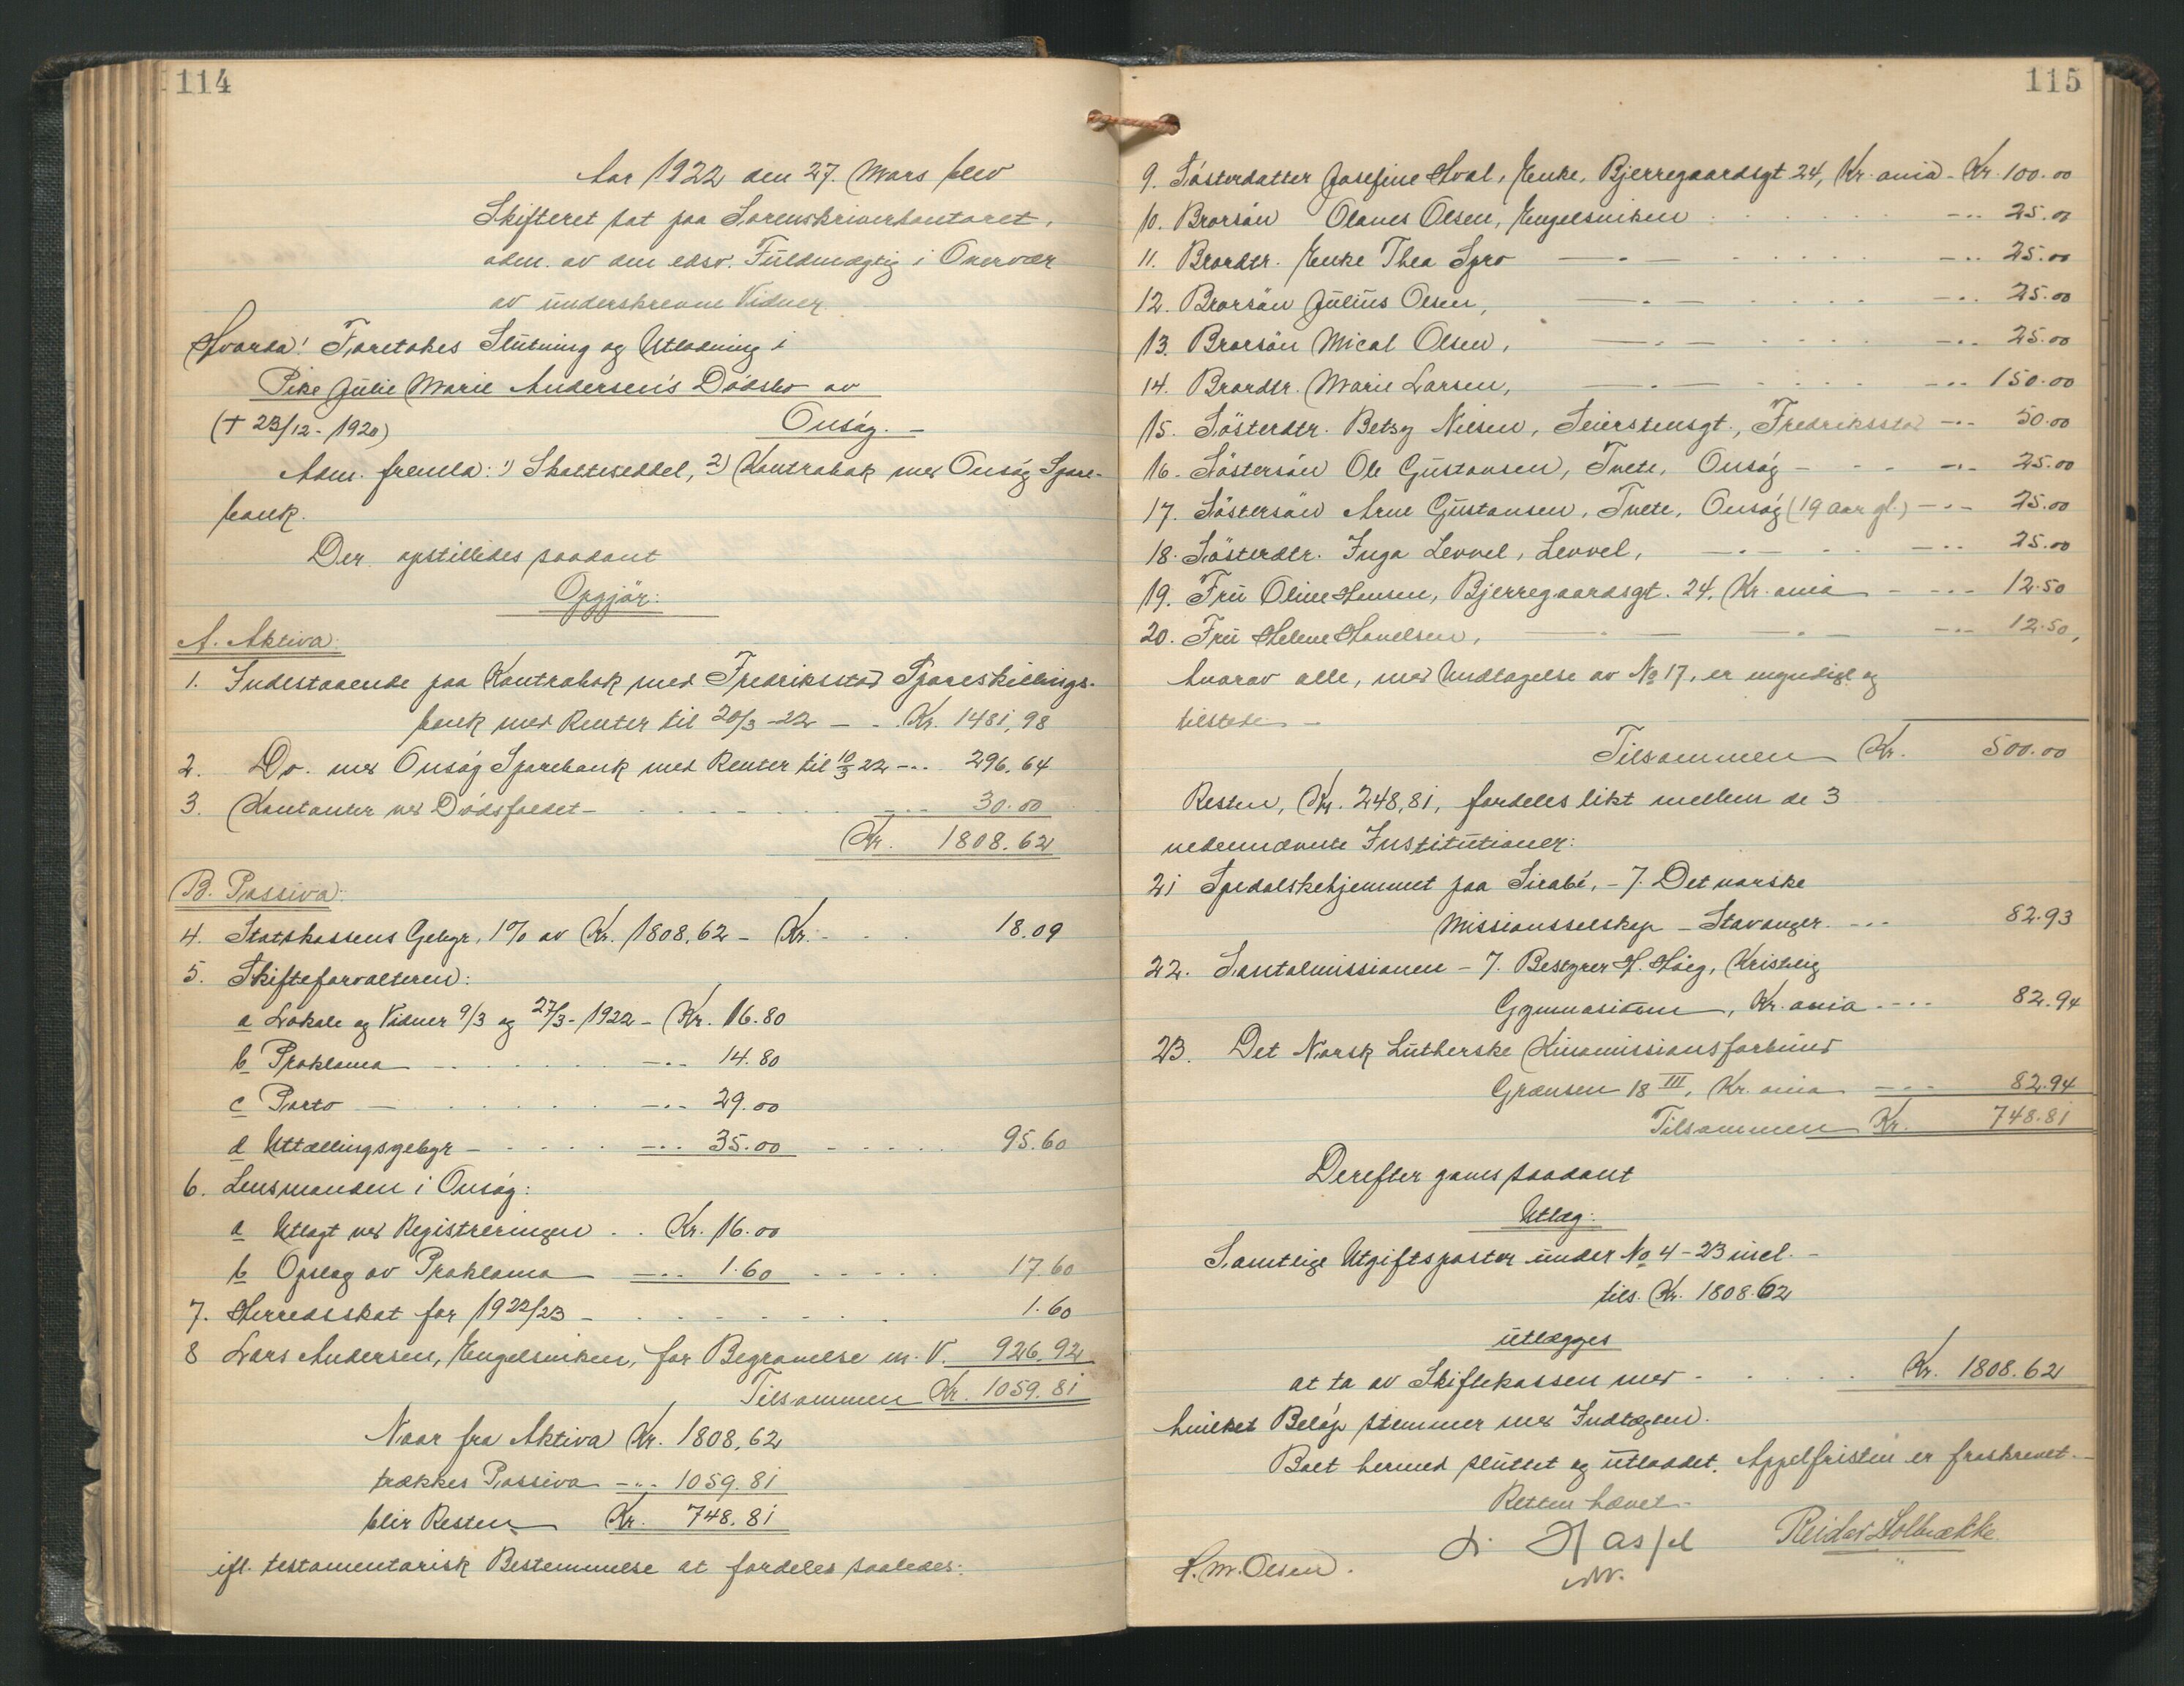 114
Aar 1922 den 27. Mars blev
Skifteret sat paa Sorenskriverkontoret,
adm. av den edsv. Fuldmægtig i Overvær
av underskrevne Vidner.
Hvorda: Foretokes Slutning og Utlodning i
Pike Julie Marie Andersen's Dødsbo av
(† 23/12 - 1920) Onsøy. -
Adm. fremla: 1) Skatteseddel, 2) Kontrabok med Onsøy Spare-
bank.
Der opstilledes saadant
Opgjør:
A. Aktiva:
1. Indestaaende paa Kontrabok med Fredriksstad Spareskillings-
bank med Renter til 20/3 - 22 - . Kr. 1481,98
2. Do. med Onsøy Sparebank med Renter til 10/3 22 -.. 296,64
3. Kontanter ved Dødsfaldet - - .. 30.00
Kr. 1808.62
B. Passiva:
4. Statskassens Gebyr, 1% av Kr. 1808,62 - Kr. 18.09
5. Skifteforvalteren:
a Lokale og Vidner 9/3 og 27/3 - 1922 - Kr. 16.80
b Proklama - .. 14.80
c Porto - -.. 29.00
d Uttællingsgebyr - -.. 35.00 95.60
6. Lensmanden i Onsøy:
a Utlagt ved Registreringen . . Kr. 16.00
b Opslag av Proklama -.. 1.60 17.60
7. Herredsskat for 1922/23 - 1.60
8 Lars Andersen, Engelsviken, for Begravelse m. V. 926,92
Tilsammen Kr. 1059.81
Naar fra Aktiva Kr. 1808,62
trækkes Passiva -..- 1059.81
blir Resten Kr. 748,81
ifl. testamentarisk Bestemmelse at fordeles saaledes:
115
9. Søsterdatter Josefine Hval, Enke, Bjerregaardsgt 24, Kr.ania - Kr. 100.00
10. Brorsøn Olaves Olsen, Engelsviken -.. 25.00
11. Brordtr. Enke Thea Spro -.- -.. 25.00
12. Brorsøn Julius Olsen, -.- -.. 25.00
13. Brorsøn Mical Olsen, -.- -.. 25.00
14. Brordtr. Marie Larsen, -.- -.. 150.00
15. Søsterdtr. Betsy Nilsen, Seierstensgt., Fredriksstad -.- 50.00
16. Søstersøn Ole Gustavsen, Tvete, Onsøy - -.- 25.00
17. Søstersøn Arne Gustavsen, Tvete, Onsøy (19 aar gl.) -.- 25.00
18. Søsterdtr. Inga Levvel, Levvel, -.- -.. 25.00
19. Fru Oline Hansen, Bjerregaardsgt. 24, Kr.ania - -.- 12.50
20. Fru Helene Havelsen, -.- -.- -.. 12.50,
hvorav alle, med Undtagelse av No 17, er myndige og
tilstede -
Tilsammen Kr. 500.00
Resten, Kr. 248,81, fordeles likt mellem de 3
nedennævnte Institutioner:
21 Spedalskehjemmet paa Sirabé, - 7. Det norske
Missionsselskap - Stavanger. -.. 82.93
22. Santalmissionen - 7. Bestyrer H. Høeg, Kristelig
Gymnasium, Kr.ania -.. 82.94
23. Det Norsk Lutherske Kinamissionsforbund
Grænsen 18 III, Kr.ania -.. 82.94
Tilsammen Kr. 748.81
Derefter gaves saadant
Utlæg:
Samtlige Utgiftsposter under No 4 - 23 incl. -
tils. Kr. 1808.62
utlægges
at ta av Skiftekassen med - Kr. 1808.62
hvilket Beløp stemmer med Indtægten.
Boet hermed sluttet og utloddet. Appelfristen er fraskrevet. -
Retten hævet. -
Hassel Reidar Solbrække
A. M. Olsen.